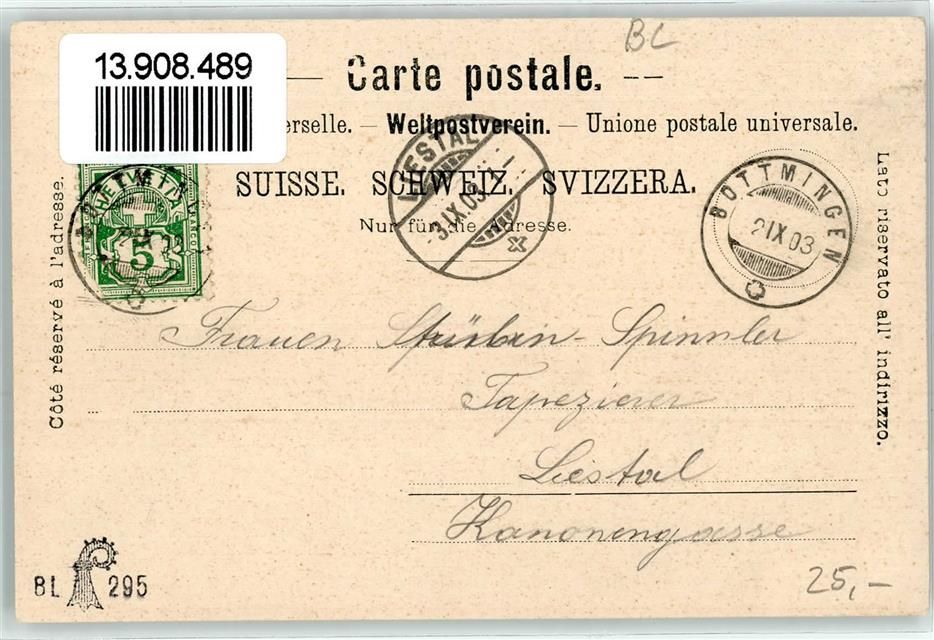 BC
13.908.489
Carte postale.
erselle. — Weltpostverein. — Unione postale universale.
SUISSE. SCHWEIZ. SVIZZERA.
Nur für die Adresse.
HELVETIA
5
LIESTAL
3.IX.03.
X
BOTTMINGEN
2 IX 03
Côté réservé à l'adresse.
Lato riservato all' indirizzo.
Frauen Strübin-Spinnler
Tapezierer
Liestal
Kanonengasse
BL 295
25,-